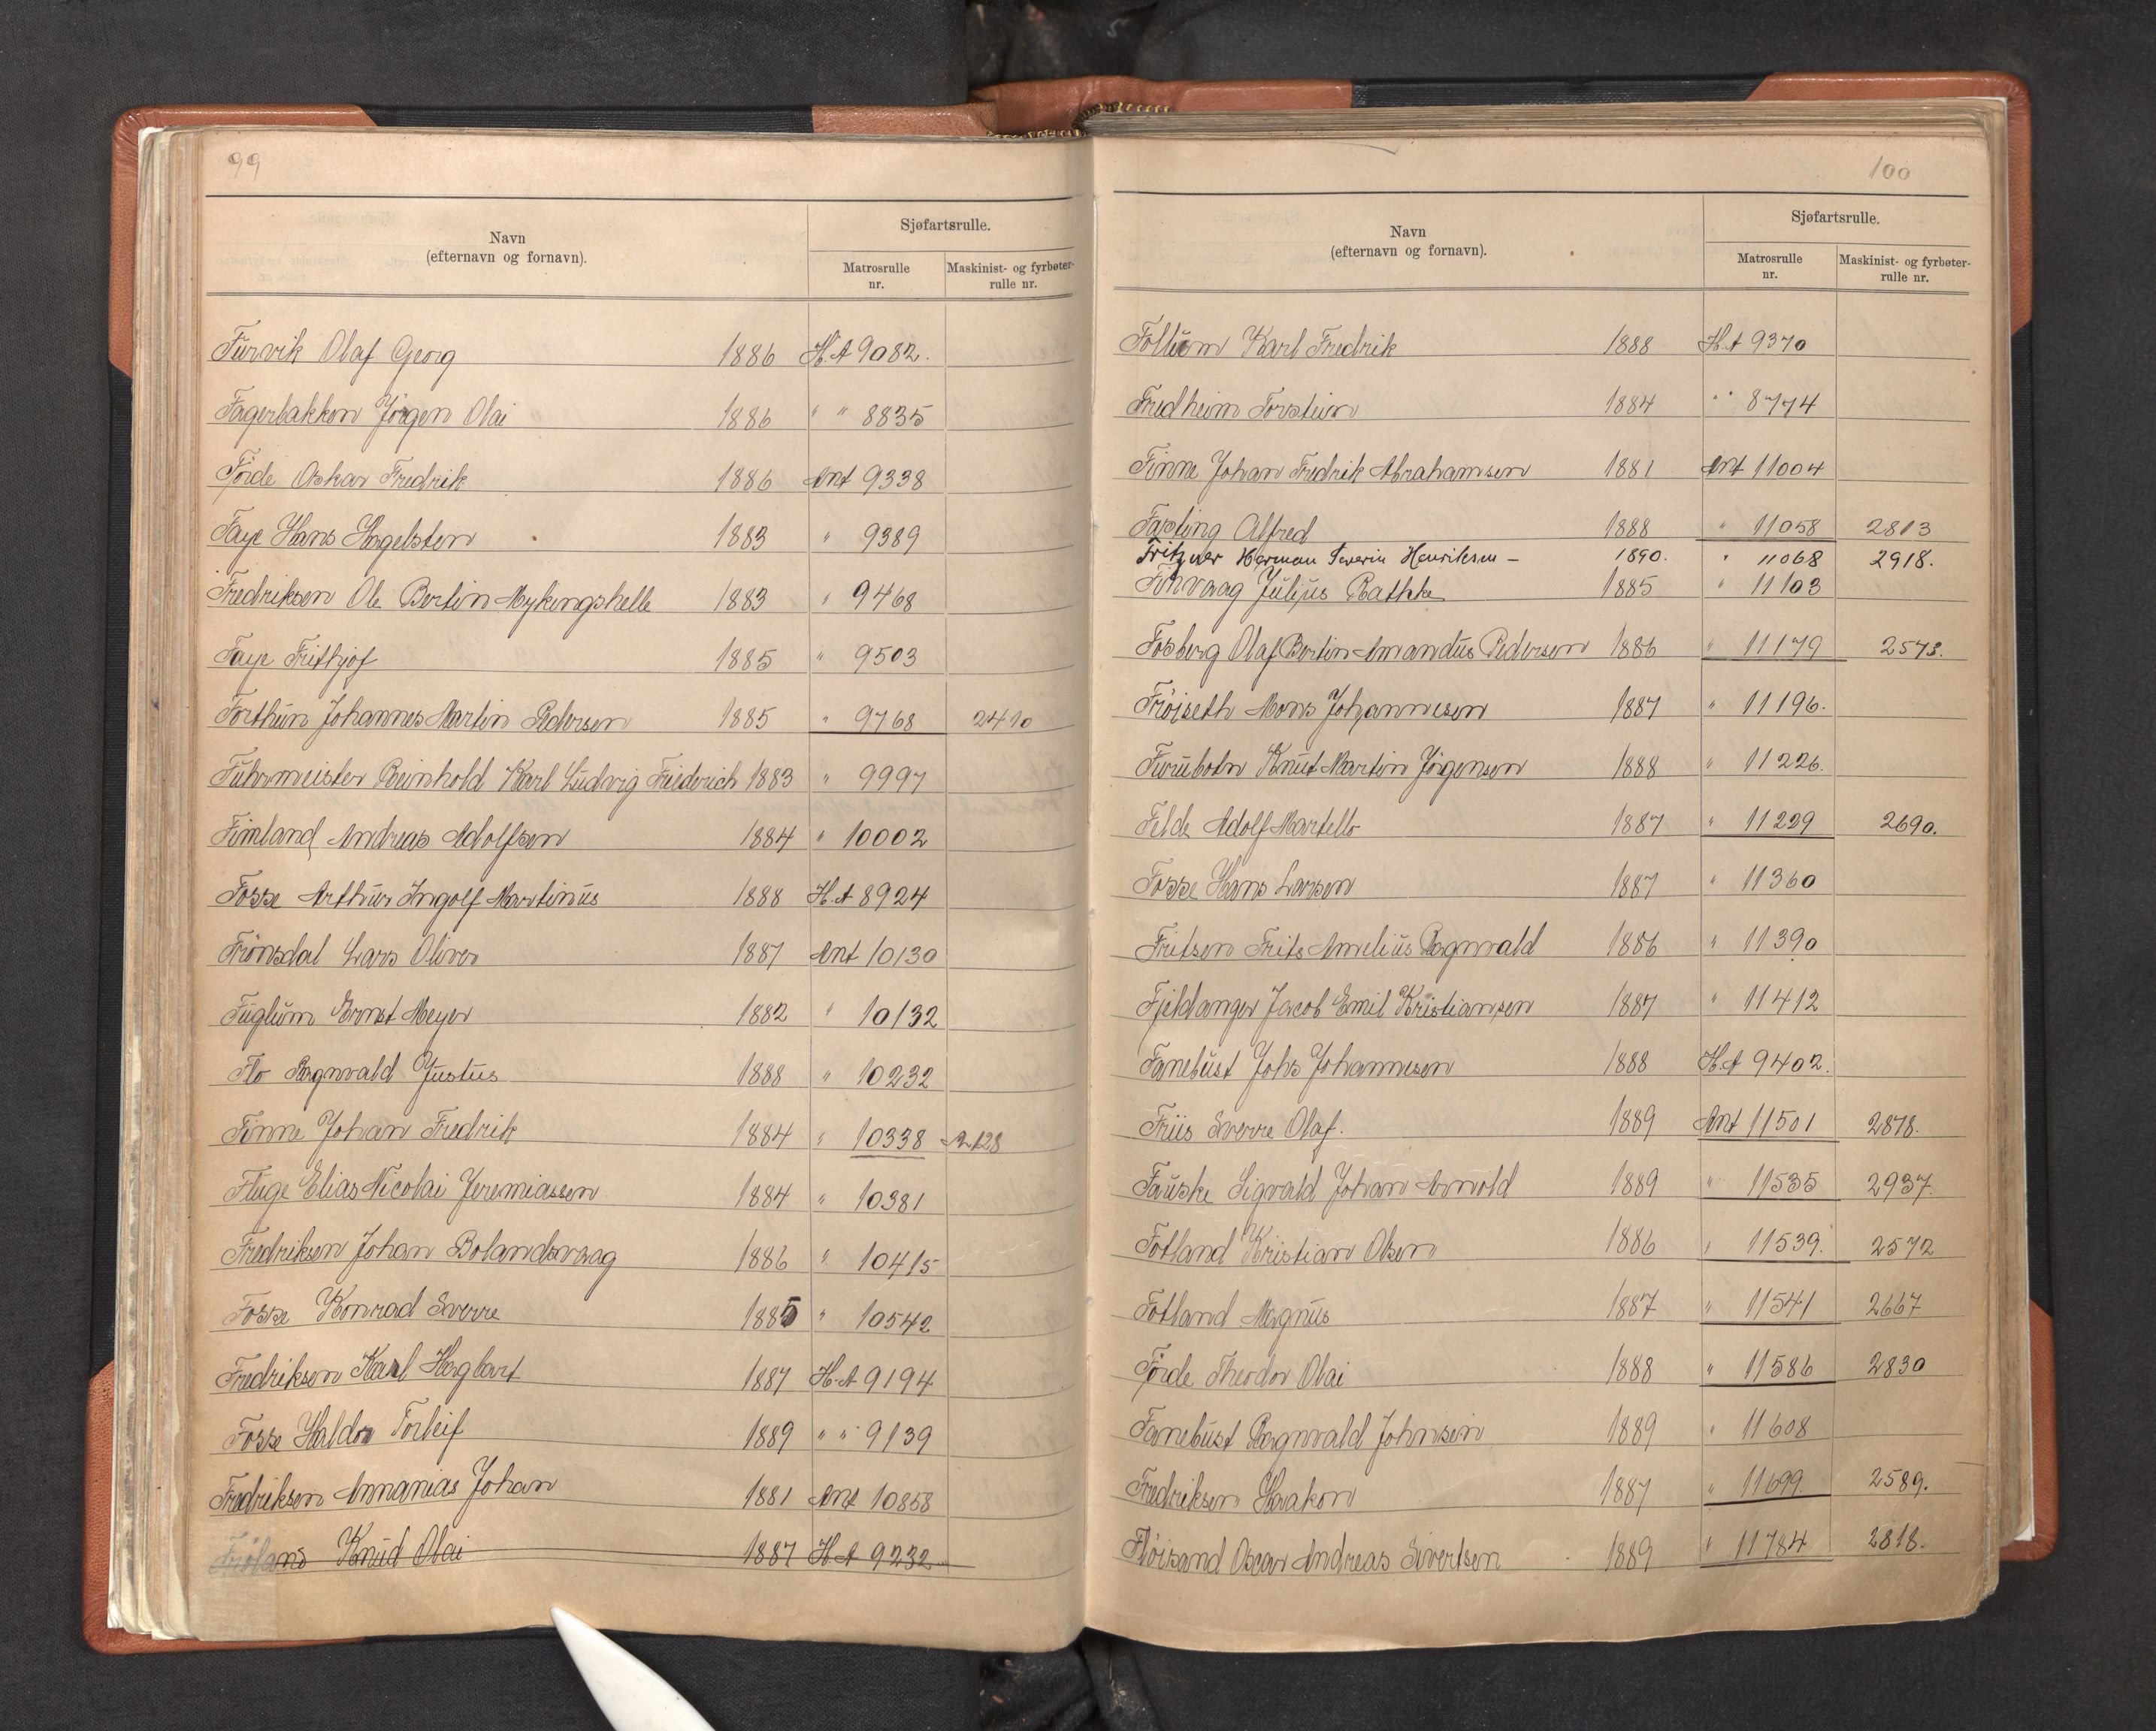 99
Navn
(efternavn og fornavn).
Sjøfartsrulle.
Matrosrulle
nr.
Maskinist- og fyrbøter-
rulle nr.
Furvik Olaf Georg 1886 H.A 9082.
Fagerbakken Jørgen Olai 1886 " " 8835
Førde Oskar Fredrik 1886 Ant 9338
Faye Hans Hagelsten 1883 " 9389
Fredriksen Ole Bertin Mykingshelle 1883 " 9468
Faye Frithjof 1885 " 9503
Forthun Johannes Martin Pedersen 1885 " 9768 2410
Fuhrmeister Reinhold Karl Ludvig Friederich 1883 " 9997
Fimland Andreas Adolfsen 1884 " 10002
Fosse Arthur Ingolf Martinus 1888 H.A 8924
Frønsdal Lars Oliver 1887 Ant 10130
Fuglum Ernst Meyer 1882 " 10132
Flo Ragnvald Justus 1888 " 10232
Finne Johan Fredrik 1884 " 10338 2128
Fluge Elias Nicolai Jeremiassen 1884 " 10381
Fredriksen Johan Bolandsvaag 1886 " 10415
Fosse Konrad Sverre 1885 " 10542
Fredriksen Karl Hagbart 1887 H.A 9194
Fosse Haldor Torleif 1889 " " 9139
Fredriksen Annanias Johan 1881 Ant 10858
Frøland Knud Olai 1887 H.A 9232
100
Navn
(efternavn og fornavn).
Sjøfartsrulle.
Matrosrulle
nr.
Maskinist- og fyrbøter-
rulle nr.
Follum Karl Fredrik 1888 H.A 9370
Fredheim Torstein 1884 " " 8774
Finne Johan Fredrik Abrahamsen 1881 Ant 11004
Fasting Alfred 1888 " 11058 2813
Fritzner Herman Severin Henriksen - 1890. " 11068 2918.
Finvaag Julius Rathke 1885 " 11103
Fosberg Olaf Bertin Amandus Pedersen 1886 " 11179 2573.
Frøiseth Mons Johannesen 1887 " 11196.
Furubotn Knut Martin Jørgensen 1888 " 11226.
Felde Adolf Martello 1887 " 11229 2690.
Fosse Hans Larsen 1887 " 11360
Fritsen Frits Amelius Ragnvald 1886 " 11390
Fjeldanger Jacob Emil Kristiansen 1887 " 11412
Fanebust Johs Johannesen 1888 H.A 9402.
Friis Sverre Olaf. 1889 Ant 11501 2878.
Fauske Sigvald Johan Arnold 1889 " 11535 2937.
Fotland Kristian Olsen 1886 " 11539. 2572
Fotland Magnus 1887 " 11541 2667
Førde Theodor Olai 1888 " 11586 2830
Fanebust Ragnvald Johnsen 1889 " 11608
Fredriksen Haakon 1887 " 11699 2589.
Fløisand Oscar Andreas Sivertsen 1889 " 11784 2818.